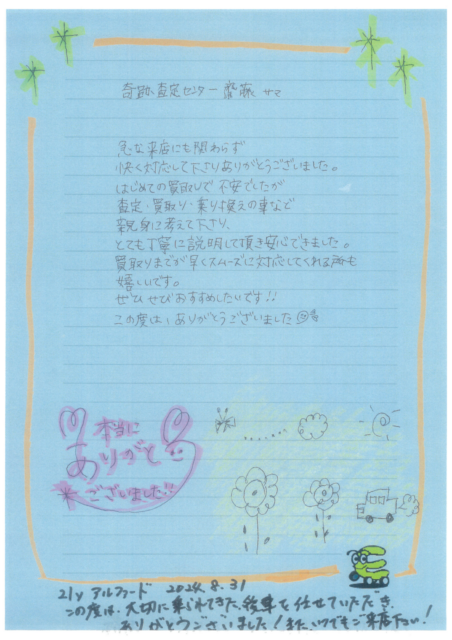 査定センター 齋藤 サマ
急な来店にも関わらず
快く対応して下さりありがとうございました。
はじめての買取りで不安でしたが
査定・買取り・乗り換えの事など
親身に考えて下り、
とても丁寧に説明して頂き安心できました。
買取りまでが早くスムーズに対応してくれる所も
嬉しいです。
ぜひぜひおすすめしたいです!!
この度は、ありがとうございました
本当に
ありがとう
ございました!!
21y アルファード 2024.8.31
この度は、大切に乗られてきた愛車を任せていただき、
ありがとうございました!また、いつでもご来店下さい!